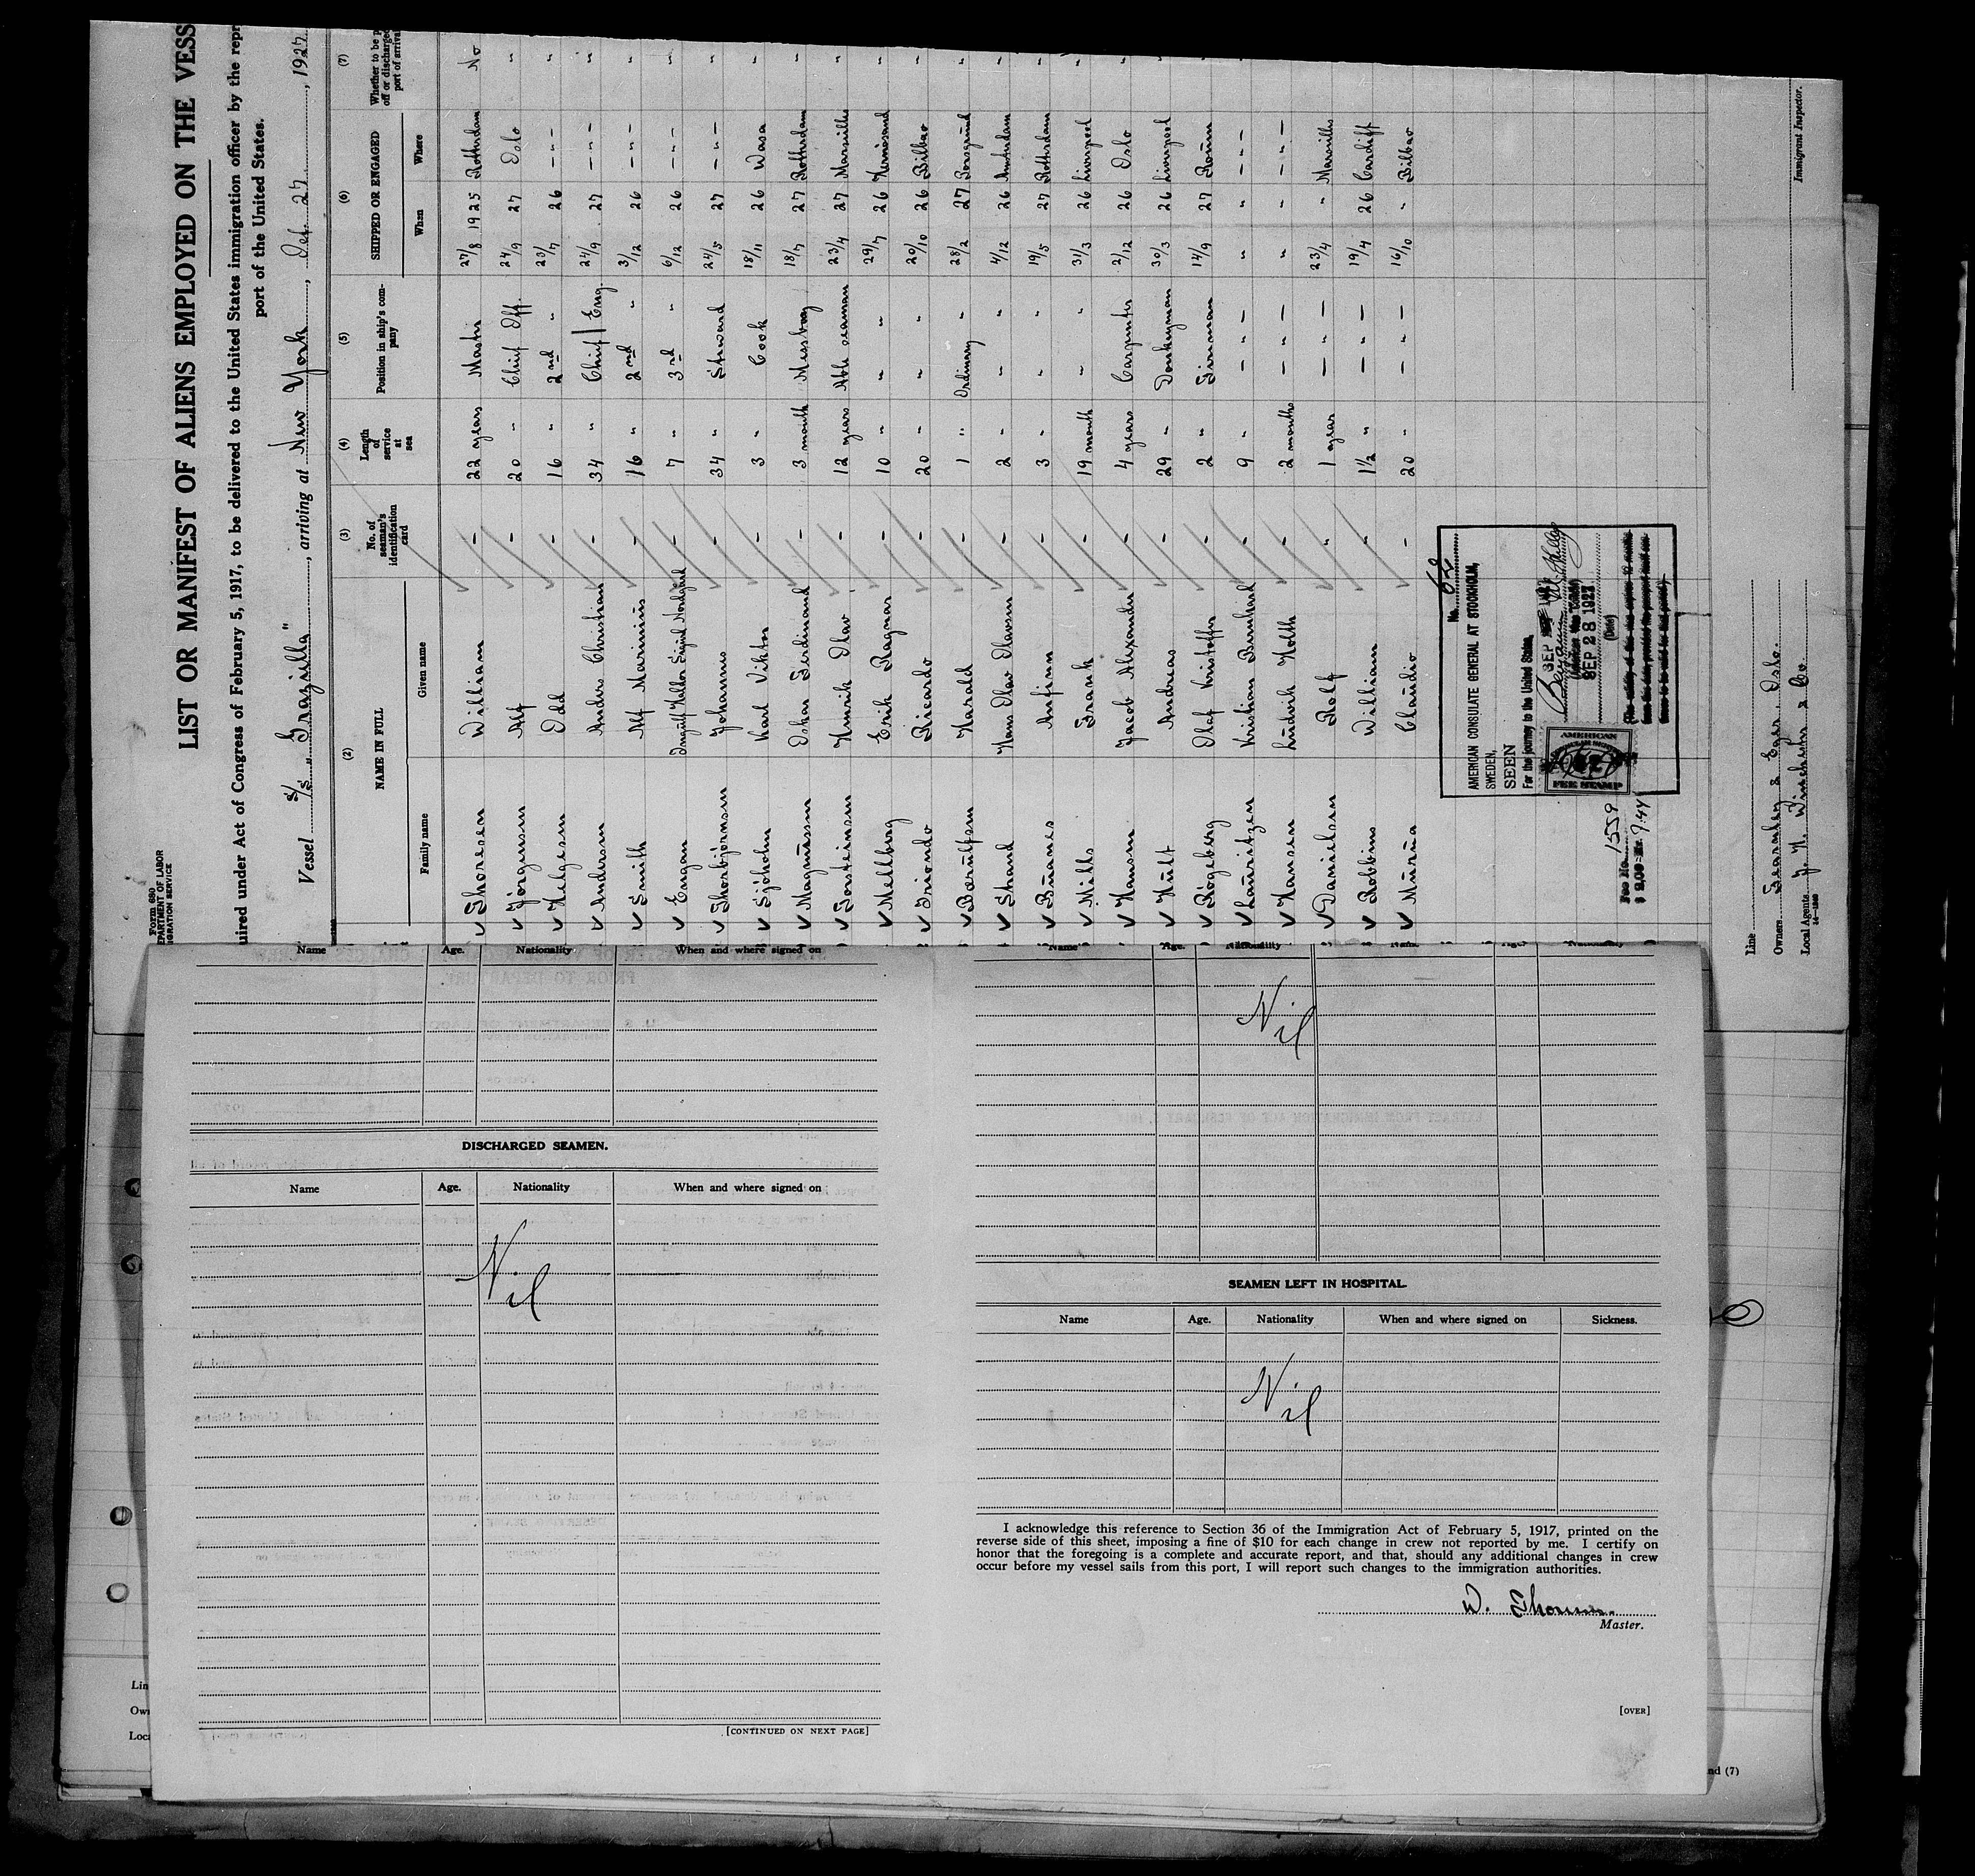 Form 680
LIST OR MANIFEST OF ALIENS EMPLOYED ON THE VESS
uired under Act of Congress of February 5, 1917, to be delivered to the United States immigration officer by the repr
port of the United States.
Vessel S/S „Grazilla", arriving at New York, Oct. 27, 1927
(2) (3) (4) (5) (6) (7)
NAME IN FULL No. of seaman's identification card Length of service at sea Position in ship's company SHIPPED OR ENGAGED Whether to be p off or discharged port of arrival
Family name Given name When Where
✓ Thoresen William - 22 years Master 27/8 1925 Rotterdam No
✓ Jörgensen Alf - 20 " Chief Off. 24/9 27 Oslo "
✓ Helgesen Odd - 16 " 2nd " 23/7 26 - " - "
✓ Anders Christian - 34 " Chief Eng. 24/9 27 - " - "
✓ Smith Alf Marinius - 16 " 2nd " 3/12 26 - " - "
✓ Engan - 7 " 3rd " 6/12 26 - " - "
✓ Thorbjörnsen Johannes - 34 " Steward 24/5 27 - " - "
✓ Sjöholm Karl Viktor - 3 " Cook 18/11 26 Wasa "
✓ Magnussen Oskar Ferdinand - 3 month Messboy 18/7 27 Rotterdam "
✓ Torsteinsen Henrik Olav - 12 years Able seaman 23/4 27 Marseille "
✓ Mellberg Erik Ragnar - 10 " " 29/7 26 Hernösand "
✓ Ricardo - 20 " " 20/10 26 Bilbao "
✓ Harald - 1 " Ordinary " 28/2 27 "
✓ Strand Hans Olav Olavsen - 2 " " 4/12 26 Amsterdam "
✓ Buanes Anfinn - 3 " " 19/5 27 Rotterdam "
✓ Mills Frank - 19 month " 31/3 26 Liverpool "
✓ Hansen Jacob Alexander - 4 years Carpenter 2/12 26 Oslo "
✓ Hult Andreas - 29 " Donkeyman 30/3 26 Liverpool "
✓ Rögeberg Olaf Kristoffer - 2 " Fireman 14/9 27 Rouen "
✓ Lauritzen Kristian Bernhard - 9 " - " - " " - " -
✓ Hansen Ludvik Holth - 2 months - " - " " - " -
✓ Danielsen Rolf " 1 year - " - 23/4 " Marseilles
✓ Robbins William " 1½ " - " - 19/4 26 Cardiff
✓ Claudio - 20 " - " - 16/10 " Bilbao
No. 62
AMERICAN CONSULATE GENERAL AT STOCKHOLM,
SWEDEN,
SEEN
For the journey to the United States.
SEP 28 1927
(Date)
AMERICAN
FEE STAMP
Fee No. 1559
Line
Owners
Oslo.
Local Agents
Immigrant Inspector.
Name Age. Nationality When and where signed on
DISCHARGED SEAMEN.
Name Age. Nationality When and where signed on
Nil
[CONTINUED ON NEXT PAGE]
Name Age. Nationality
Nil
SEAMEN LEFT IN HOSPITAL.
Name Age. Nationality When and where signed on Sickness.
Nil
I acknowledge this reference to Section 36 of the Immigration Act of February 5, 1917, printed on the
reverse side of this sheet, imposing a fine of $10 for each change in crew not reported by me. I certify on
honor that the foregoing is a complete and accurate report, and that, should any additional changes in crew
occur before my vessel sails from this port, I will report such changes to the immigration authorities.
W. Thoresen.
Master.
[OVER]
nd (7)